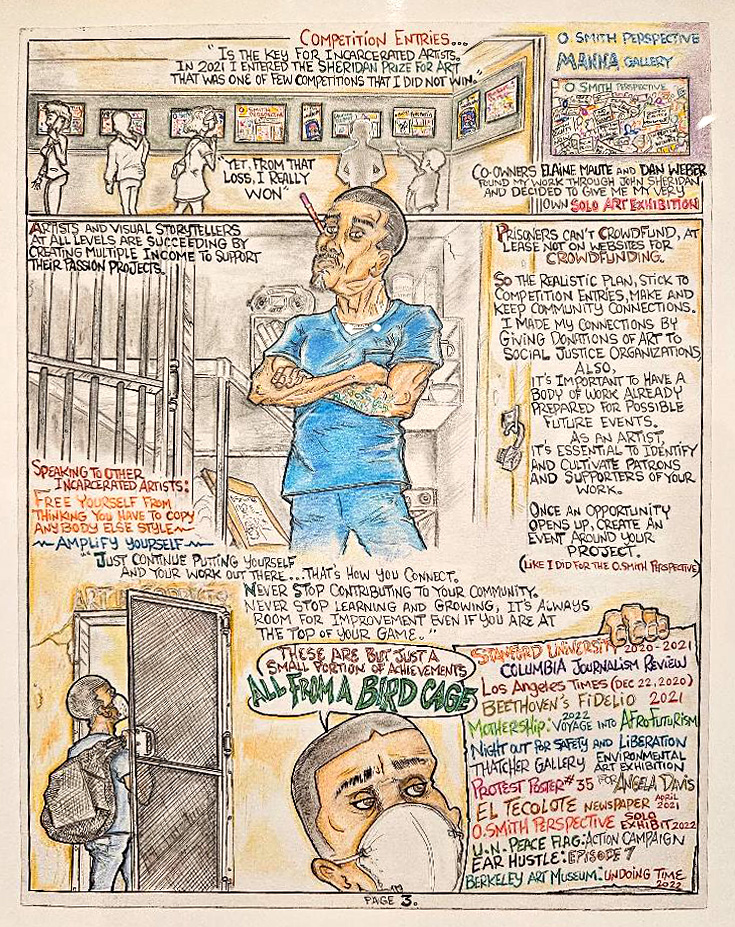 COMPETITION ENTRIES...
"IS THE KEY FOR INCARCERATED ARTISTS.
IN 2021 I ENTERED THE SHERIDAN PRIZE FOR ART
THAT WAS ONE OF FEW COMPETITIONS THAT I DID NOT WIN."
"YET, FROM THAT
LOSS, I REALLY
WON"
O. SMITH PERSPECTIVE
MANNA GALLERY
O. SMITH PERSPECTIVE
CO-OWNERS ELAINE MAUTE AND DAN WEBER
FOUND MY WORK THROUGH JOHN SHERIDAN
AND DECIDED TO GIVE ME MY VERY
OWN SOLO ART EXHIBITION
ARTISTS AND VISUAL STORYTELLERS
AT ALL LEVELS ARE SUCCEEDING BY
CREATING MULTIPLE INCOME TO SUPPORT
THEIR PASSION PROJECTS.
PRISONERS CAN'T CROWDFUND, AT
LEASE NOT ON WEBSITES FOR
CROWDFUNDING.
SO THE REALISTIC PLAN, STICK TO
COMPETITION ENTRIES, MAKE AND
KEEP COMMUNITY CONNECTIONS.
I MADE MY CONNECTIONS BY
GIVING DONATIONS OF ART TO
SOCIAL JUSTICE ORGANIZATIONS,
ALSO,
IT'S IMPORTANT TO HAVE A
BODY OF WORK ALREADY
PREPARED FOR POSSIBLE
FUTURE EVENTS.
AS AN ARTIST,
IT'S ESSENTIAL TO IDENTIFY
AND CULTIVATE PATRONS
AND SUPPORTERS OF YOUR
WORK.
ONCE AN OPPORTUNITY
OPENS UP, CREATE AN
EVENT AROUND YOUR
PROJECT.
(LIKE I DID FOR THE O.SMITH PERSPECTIVE)
SPEAKING TO OTHER
INCARCERATED ARTISTS:
FREE YOURSELF FROM
THINKING YOU HAVE TO COPY
ANYBODY ELSE STYLE~
~AMPLIFY YOURSELF~
"JUST CONTINUE PUTTING YOURSELF
AND YOUR WORK OUT THERE...THAT'S HOW YOU CONNECT.
NEVER STOP CONTRIBUTING TO YOUR COMMUNITY.
NEVER STOP LEARNING AND GROWING, IT'S ALWAYS
ROOM FOR IMPROVEMENT EVEN IF YOU ARE AT
THE TOP OF YOUR GAME."
THESE ARE BUT JUST A
SMALL PORTION OF ACHIEVEMENTS
ALL FROM A BIRD CAGE
STANFORD UNIVERSITY 2020-2021
COLUMBIA JOURNALISM REVIEW
LOS ANGELES TIMES (DEC 22, 2020)
BEETHOVEN'S FIDELIO 2021
MOTHERSHIP: 2022 VOYAGE INTO AFROFUTURISM
NIGHT OUT FOR SAFETY AND LIBERATION
THATCHER GALLERY ENVIRONMENTAL ART EXHIBITION
PROTEST POSTER #35 FOR ANGELA DAVIS
EL TECOLOTE NEWSPAPER APRIL 2021
O.SMITH PERSPECTIVE SOLO EXHIBIT 2022
U.N. PEACE FLAG: ACTION CAMPAIGN
EAR HUSTLE: EPISODE 7
BERKELEY ART MUSEUM: UNDOING TIME 2022
PAGE 3.